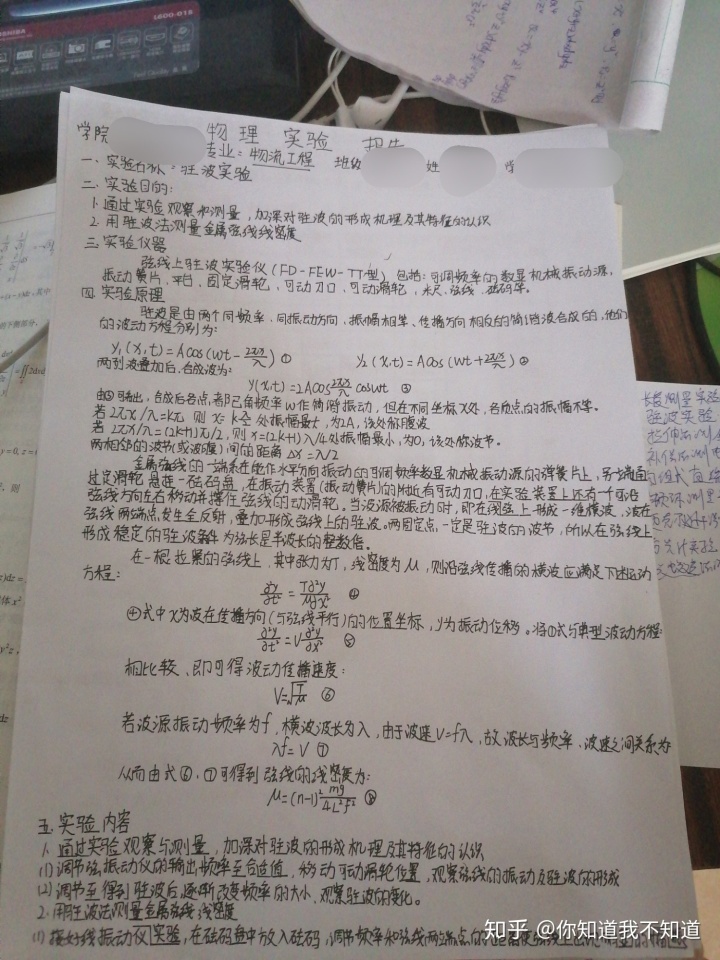 TOSHIBA
L600-01S
学院 物理 实验 报告
专业:物流工程 班级 姓 学
一. 实验名称:驻波实验
二. 实验目的:
1. 通过实验观察和测量,加深对驻波的形成机理及其特征的认识
2. 用驻波法测量金属弦线线密度
三. 实验仪器
弦线上驻波实验仪(FD-FEW-TT型)包括:可调频率的数显机械振动源,
振动簧片,平台、固定滑轮,可动刀口,可动滑轮,米尺、弦线、砝码等。
四. 实验原理
驻波是由两个同频率、同振动方向、振幅相等、传播方向相反的简谐波合成的,他们
的波动方程分别为:
y₁(x,t)=Acos(wt-2πx/λ) ① y₂(x,t)=Acos(wt+2πx/λ) ②
两列波叠加后,合成波为:
y(x,t)=2Acos2πx/λ coswt ③
由③可看出,合成后各点都已角频率w作简谐振动,但在不同坐标x处,各质点的振幅不等。
若2πx/λ=kπ, 则x=kλ/2处振幅最大,为2A,该处称腹波
若2πx/λ=(2k+1)π/2,则x=(2k+1)λ/4处振幅最小,为0,该处称波节。
两相邻的波节(或波腹)间的距离Δx=λ/2
金属弦线的一端系在能作水平方向振动的可调频率数显机械振动源的弹簧片上,另一端通
过定滑轮悬挂一砝码盘,在振动装置(振动簧片)的附近有可动刀口,在实验装置上还有一个可沿
弦线方向左右移动并撑住弦线的动滑轮。当波源被振动时,即在弦上形成一维横波,波在
弦线两端点发生全反射,叠加形成弦线上的驻波。两固定点一定是驻波的波节,所以在弦线上
形成稳定的驻波条件为弦长是半波长的整数倍。
在一根拉紧的弦线上,其中张力为T,线密度为μ,则沿弦线传播的横波应满足下述运动
方程:
∂y/∂t=T∂²y/μ∂x² ④
④式中x为波在传播方向(与弦线平行)的位置坐标,y为振动位移。将④式与典型波动方程:
∂²y/∂t²=V∂²y/∂x² ⑤
相比较、即可得波动传播速度:
V=√T/μ ⑥
若波源振动频率为f,横波波长为λ,由于波速V=fλ,故波长与频率、波速之间关系为
λf=V ⑦
从而由式⑥,⑦可得到弦线的线密度为:
μ=(n-1)²mg/4L²f² ⑧
五. 实验内容
1. 通过实验观察与测量,加深对驻波的形成机理及其特征的认识
(1) 调节弦振动仪的输出频率至合适值,移动可动滑轮位置,观察弦线的振动及驻波的形成
(2) 调节至得到驻波后逐渐改变频率的大小、观察驻波的变化。
2. 用驻波法测量金属弦线线密度
(1) 接好弦线振动仪实验,在砝码盘中放入砝码,调节频率和弦线两端点的
长度测量实验
驻波实验
知乎 @你知道我不知道